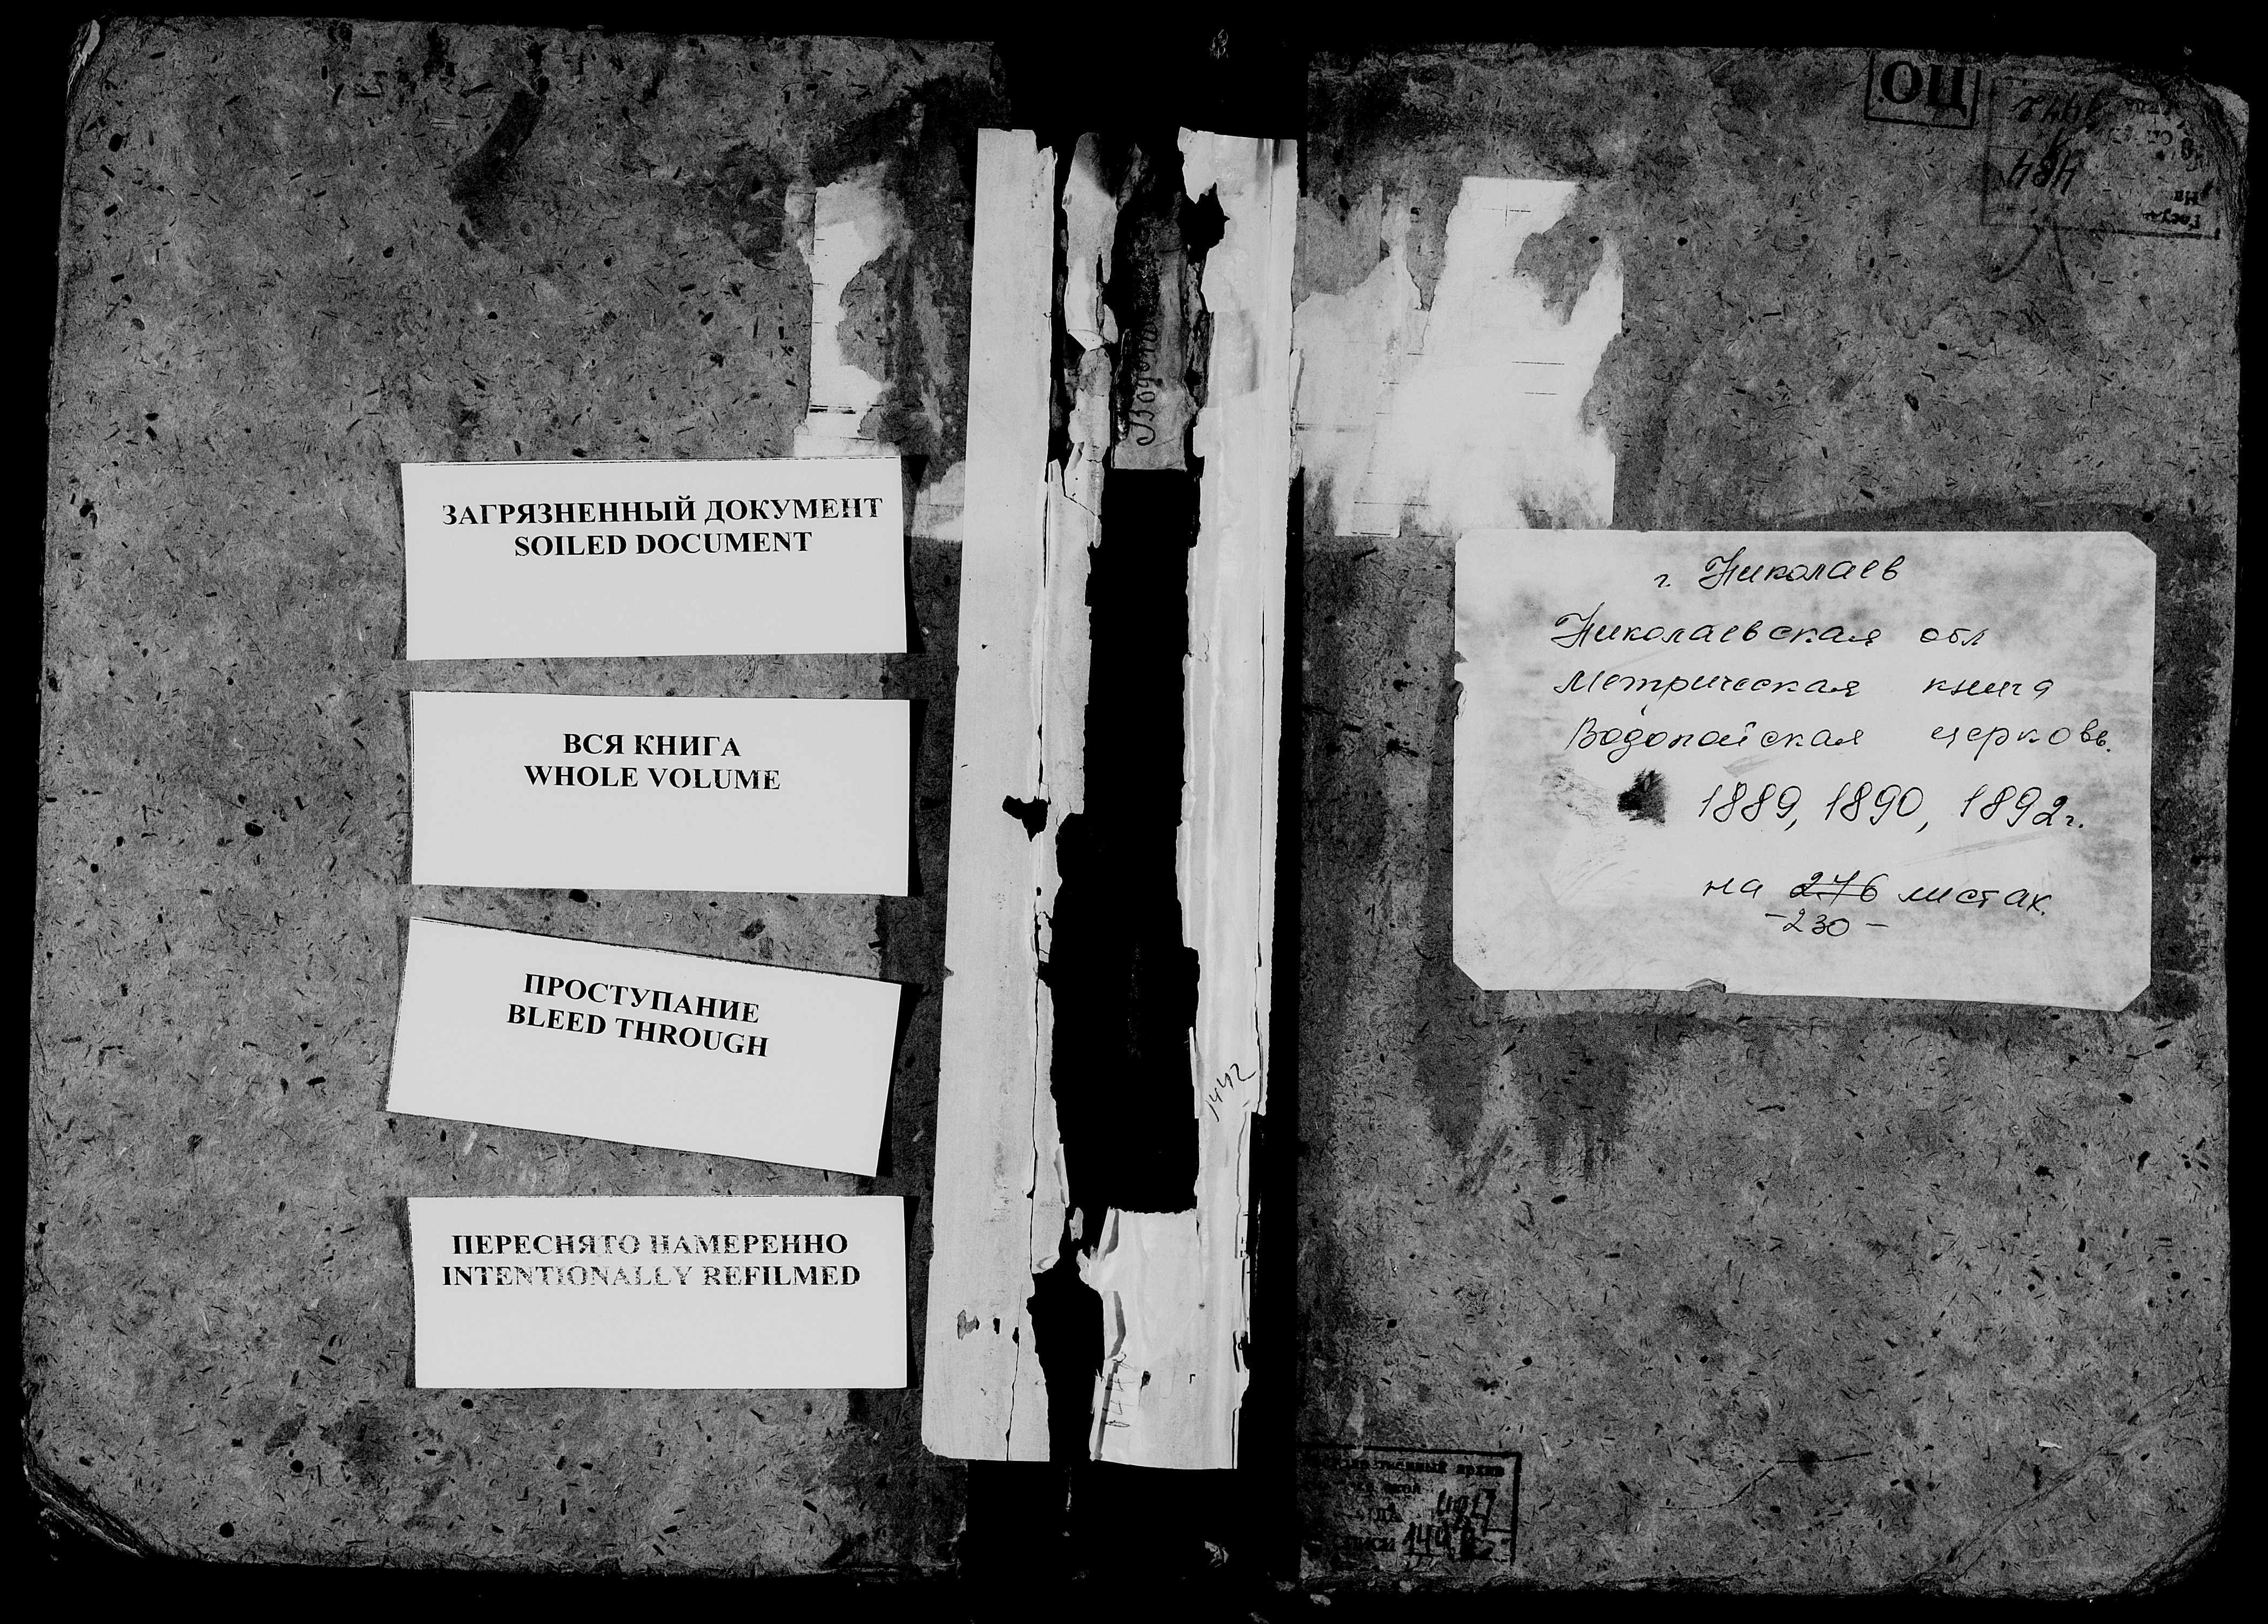 ЗАГРЯЗНЕННЫЙ ДОКУМЕНТ
SOILED DOCUMENT
ВСЯ КНИГА
WHOLE VOLUME
ПРОСТУПАНИЕ
BLEED THROUGH
ПЕРЕСНЯТО НАМЕРЕННО
INTENTIONALLY REFILMED
1442
ОЦ
1442
484
г. Николаев
Николаевская обл
Метрическая книга
Водопойская церковь.
1889, 1890, 1892г.
на 276 листах.
-230-
архив
484
1442